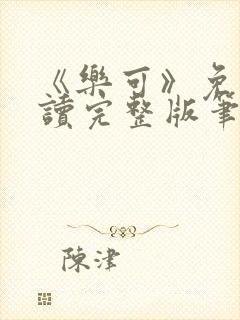 《樂可》免
讀完整版筆
陳津